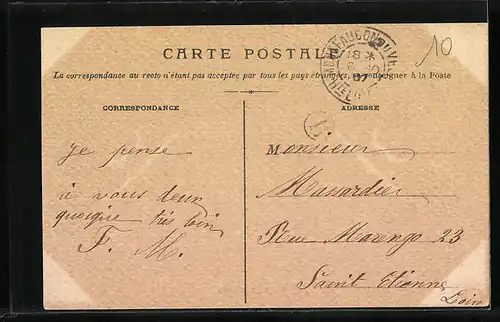 10
CARTE POSTALE
La correspondance au recto n'étant pas acceptée par tous les pays étrangers, se renseigner à la Poste
CORRESPONDANCE
Je pense
à vous deux
quoique très loin
F. M.
ADRESSE
Monsieur
Massardier
Rue Marengo 23
Saint Etienne
Loire